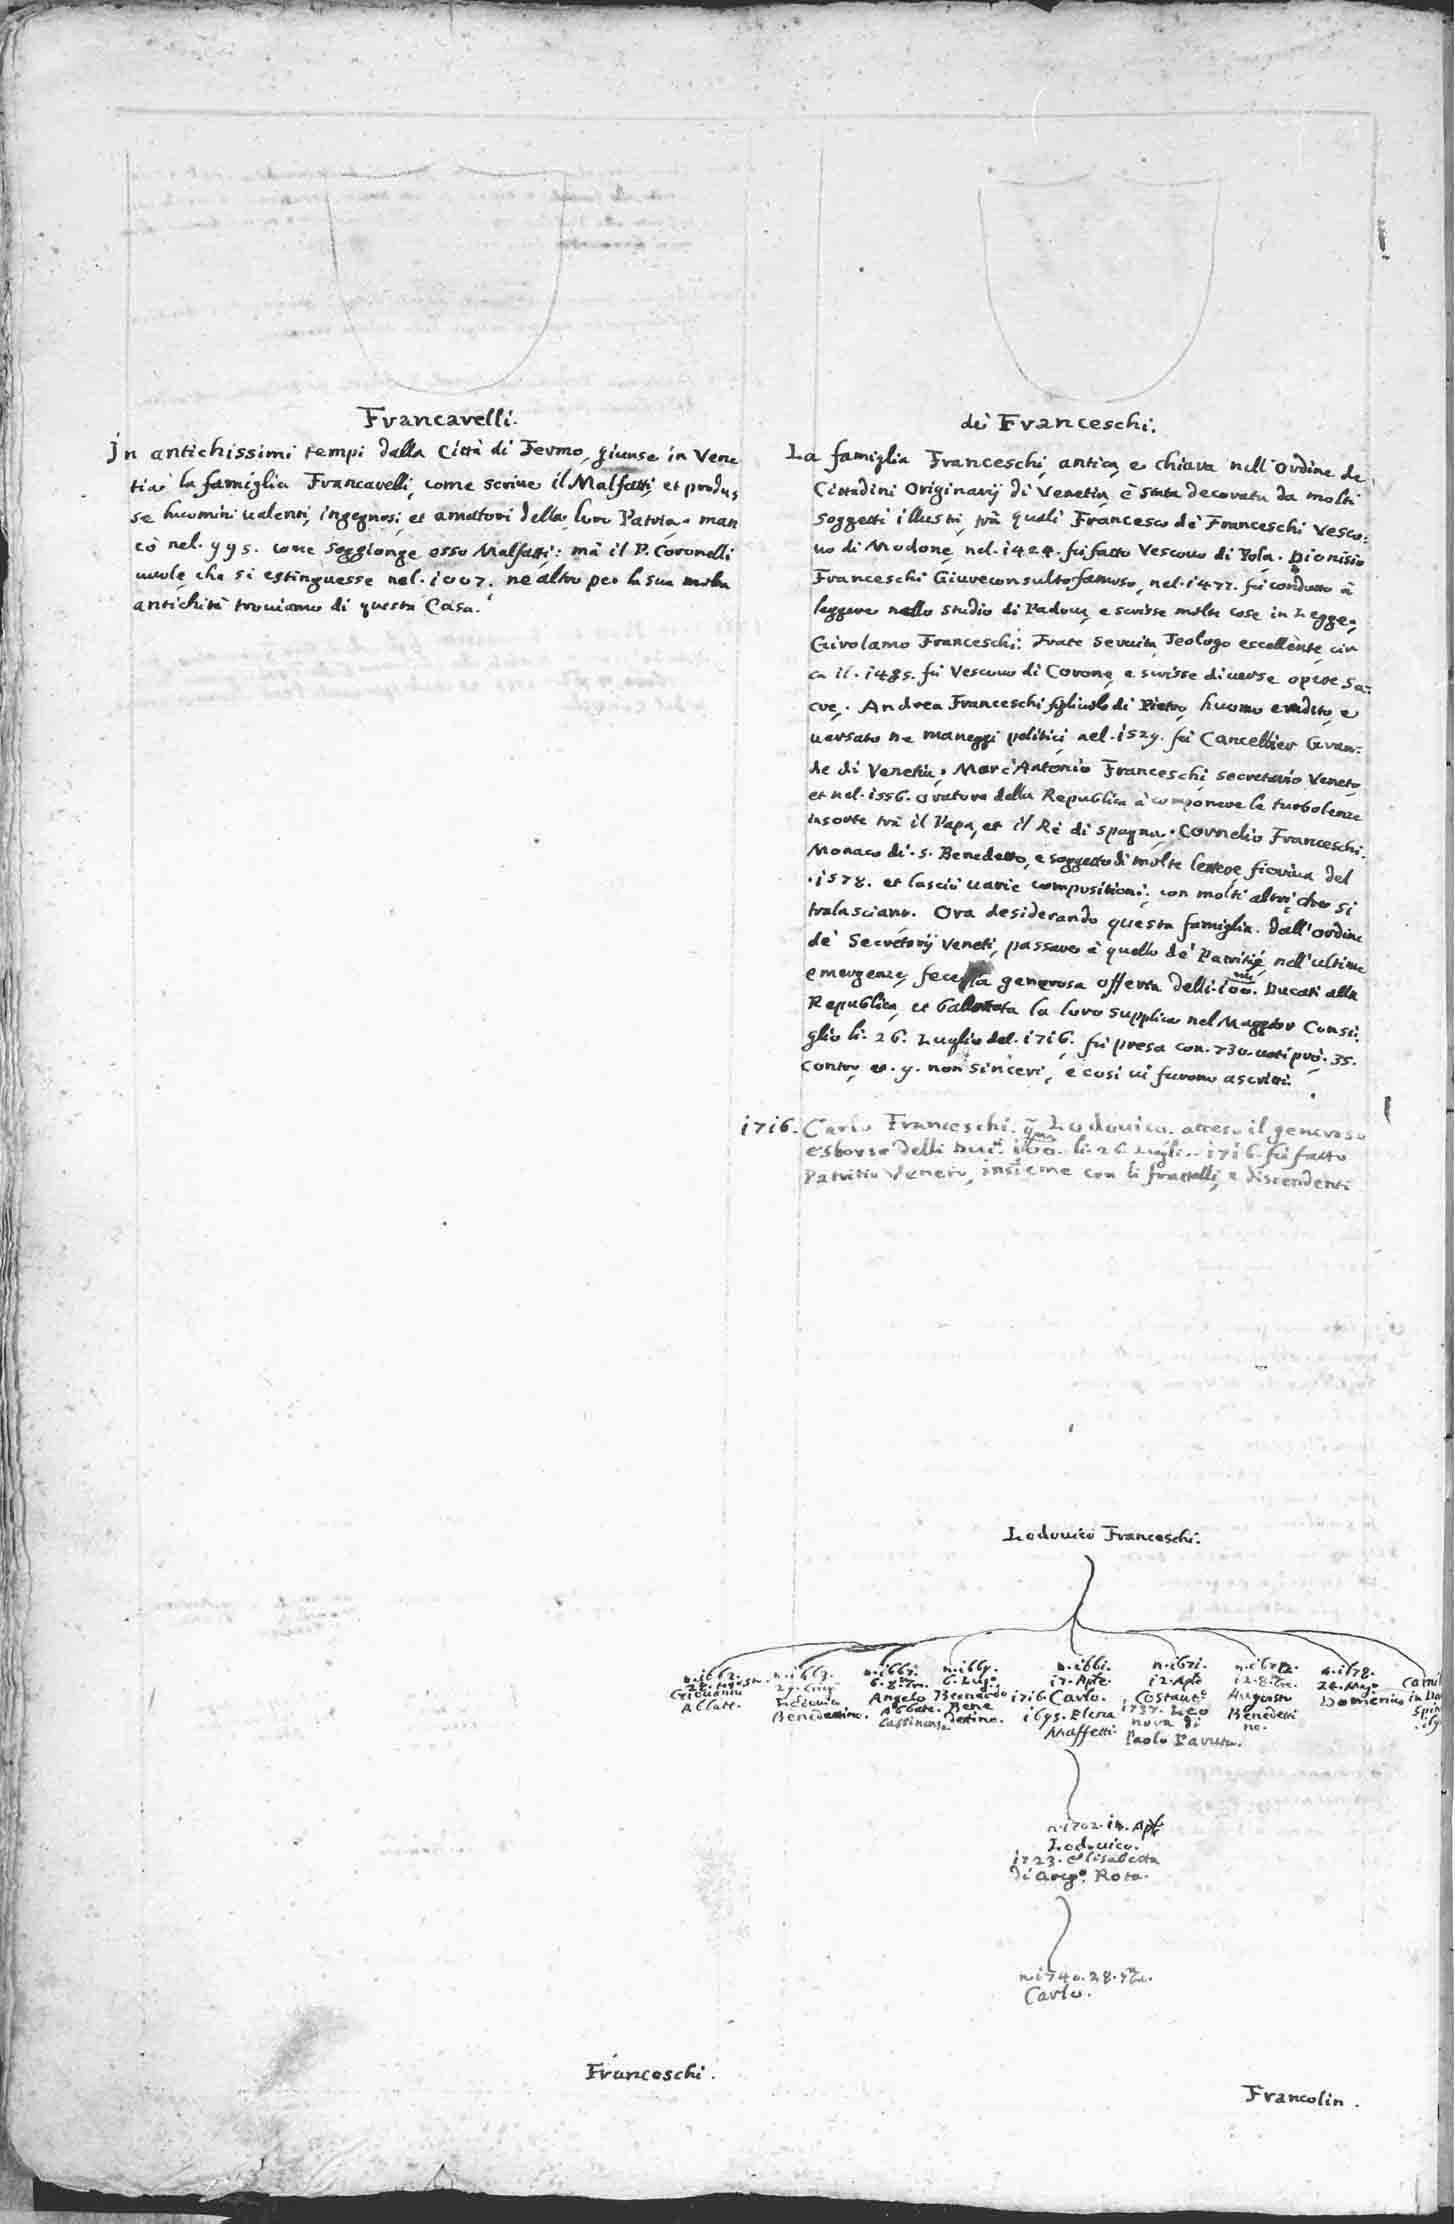 Francavelli.
In antichissimi tempi dalla Città di Fermo, giunse in Vene
tia la famiglia Francavelli, come scrive il Malfatti, et produs
se huomini valenti, ingegnosi, et amatori della loro Patria. man
cò nel. 995. come soggionge esso Malfatti: mà il P. Coronelli
uuole, che si estinguesse nel. 1007. ne altro per la sua molta
antichità trouiamo di questa Casa.
de Franceschi.
La famiglia Franceschi, antica, e chiara nell'ordine de
Cittadini Originarij di Venetia, è stata decorata da molti
soggetti illustri, trà quali Francesco de Franceschi Vesco:
uo di Modone, nel. 1424. fù fatto Vescouo di Pola. Dionisio
Franceschi Giureconsulto famoso, nel. 1477. fù condotto à
leggere nello studio di Padoua, e scrisse molte cose in Legge;
Girolamo Franceschi: Frate Seruita, Teologo eccellente, cir
ca il. 1485. fù Vescouo di Corone, e scrisse diuerse opere Sa:
cre. Andrea Franceschi figliuolo di Pietro, huomo erudito, e
uersato ne maneggi politici, nel. 1529. fù Cancellier Gran:
de di Venetia. Marc'Antonio Franceschi, secretario Veneto,
et nel. 1556. oratore della Republica à componere le turbolenze
insorte trà il Papa, et il Rè di spagna. Cornelio Franceschi.
Monaco di. S. Benedetto, e soggetto di molte lettere, fioriua del
.1578. et lasciò uarie compositioni; con molti altri, che si
tralasciano. Ora desiderando questa famiglia. dall'ordine
de' Secretarij Veneti, passare à quello de' Patritij, nell'ultime
emergenze, fece la generosa offerta delli. 100. Ducati alla
Republica, et ballottata la loro supplica nel Maggior Consi:
glio li. 26. Luglio del. 1716. fù presa con. 730. uoti prò. 35.
contro, et. 9. non sinceri, e così ui furono ascritti.
1716. Carlo Franceschi. q. Lodouico. atteso il generoso
esborso delli Duc. 100. li. 26. Lugli.. 1716. fù fatto
Patritio Veneto, insieme con li fratelli, e discendenti
Lodouico Franceschi.
n. 1662. n. 1663. n. 1667. n. 1669. n. 1661. n. 1671. n. 1678.
6. Lugº 17. Aple. 12. Aple 24. Magº
Giouanni Angelo Bernardo 1716. Carlo. Costantº Augusto Domenico
Abbate. Benedettino. Abbate. Bene 1695. Elena 1737. Benedetti
Cassinense dettino. Maffetti. nova di no.
Paolo Paruta.
n. 1702. 14. Aple
Lodouico.
1723. Elisabetta
di Rota.
n. 1740. 28.
Carlo.
Franceschi.
Francolin.